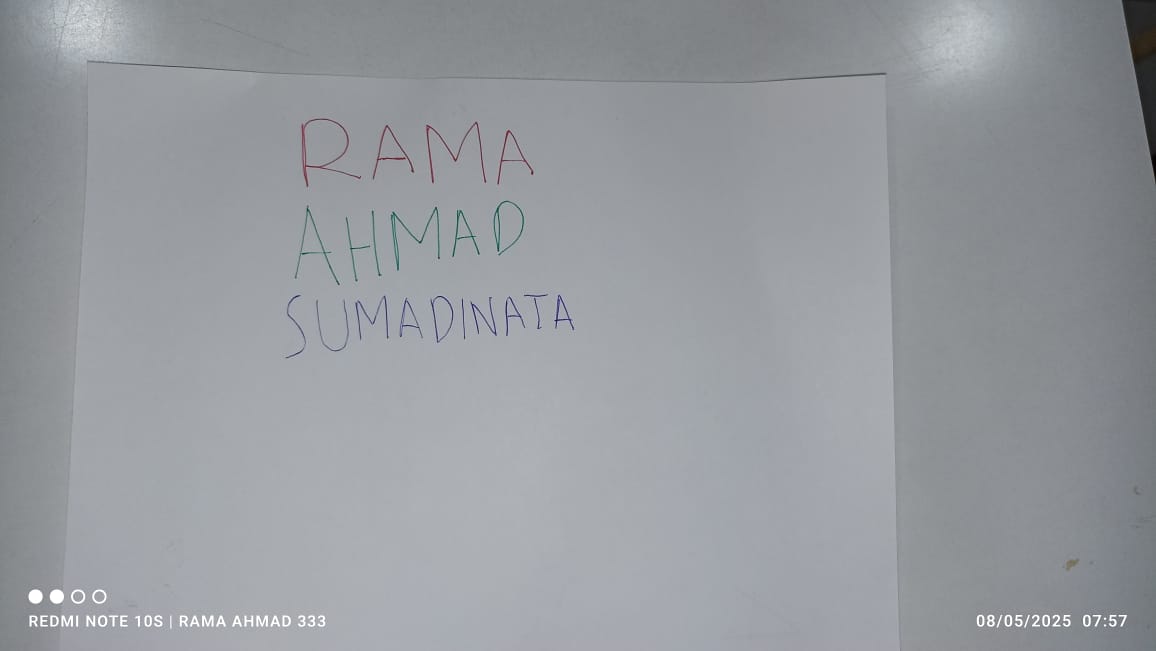 RAMA
AHMAD
SUMADINATA
REDMI NOTE 10S | RAMA AHMAD 333
08/05/2025 07:57